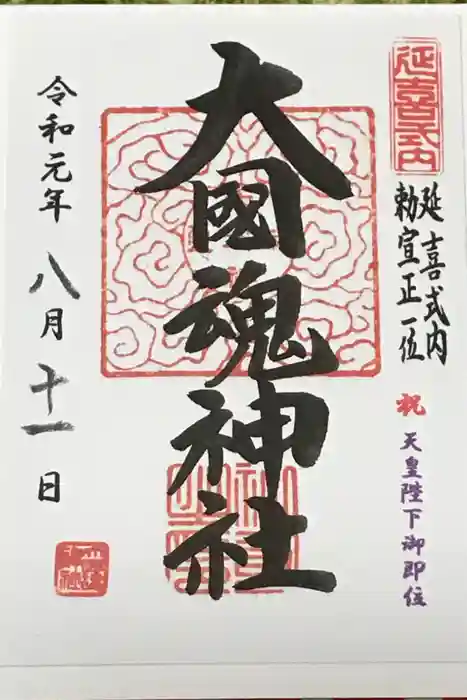 延喜式内
延喜式内
勅宣正一位
祝
天皇陛下御即位
大國魂神社
令和元年
八月
十一日